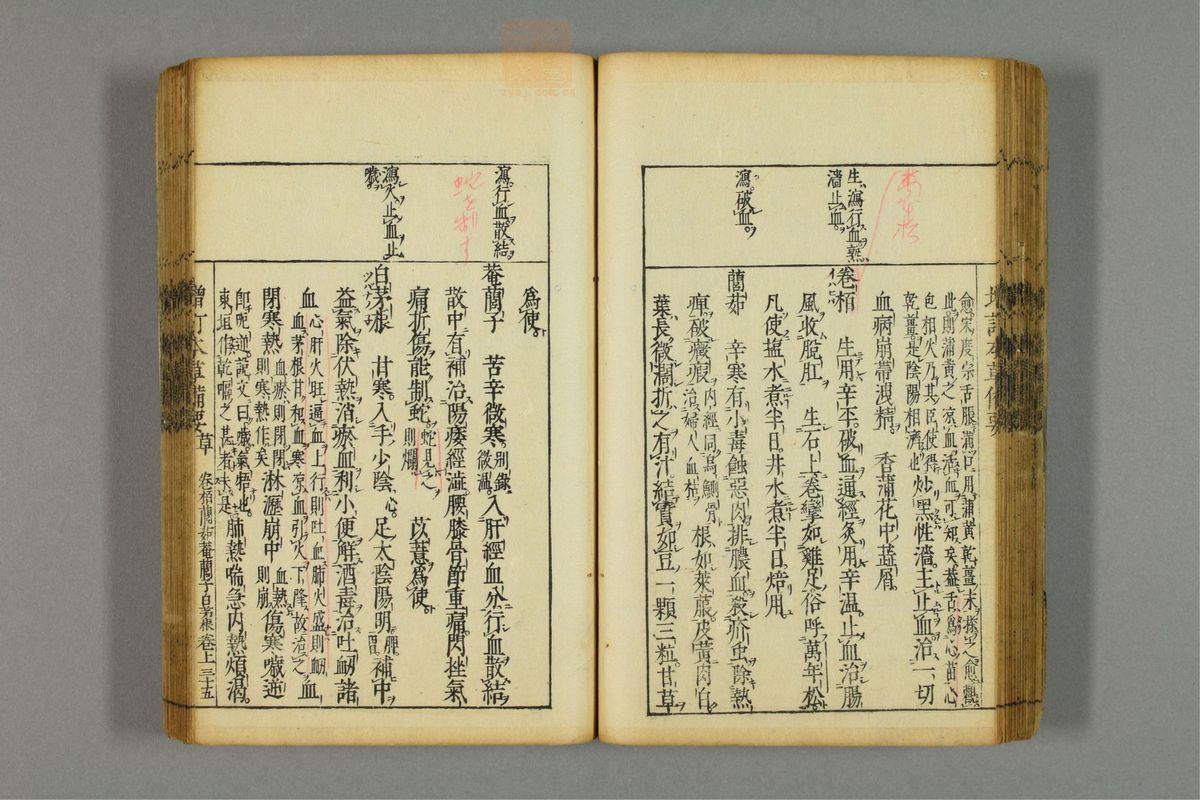 愈宋度宗舌脹滿口用蒲黃乾薑末摻之愈觀
此則蒲黃之凉血活血可知矣蓋舌爲心苗心
包相火乃其臣使得
乾薑是陰陽相濟也炒黑性濇主止血治一切
血病崩帶洩精 香蒲花中蕋屑
生瀉行血熟
濇止血
卷栢 生用辛平破血通經炙用辛溫止血治腸
風收脫肛 生石上卷攣如雞足俗呼萬年松
凡使鹽水煮半日井水煮半日焙用
瀉破血
藺茹 辛寒有小毒蝕惡肉排膿血殺疥虫除熱
痺破癥瘕內經同烏鰂骨治婦人血枯 根如萊菔皮黃肉白
葉長微濶折之有汁結實如豆一顆三粒甘草
爲使
瀉行血散結
蛇を制す
菴䕡子 苦辛微寒別錄微溫入肝經血分行血散結
散中有補治陽痿經澁腰膝骨節重痛閃挫氣
痛折傷能制蛇蛇見之則爛 苡薏爲使
瀉火止血止
噦
白茅根 甘寒入手少陰心足太陰陽明脾胃補中
益氣除伏熱消瘀血利小便解酒毒治吐衂諸
血心肝火旺逼血上行則吐血肺火盛則衂
血茅根甘和血寒凉血引火下降故治之 血
閉寒熱血瘀則閉閉則寒熱作矣淋瀝崩中血熱則崩傷寒噦逆
卽呃逆說文曰噦氣牾也
東垣作乾嘔之甚者未是 肺熱喘急內熱煩渴
增訂本草備要 草 卷栢藺茹菴䕡子白茅根 卷上 三十五